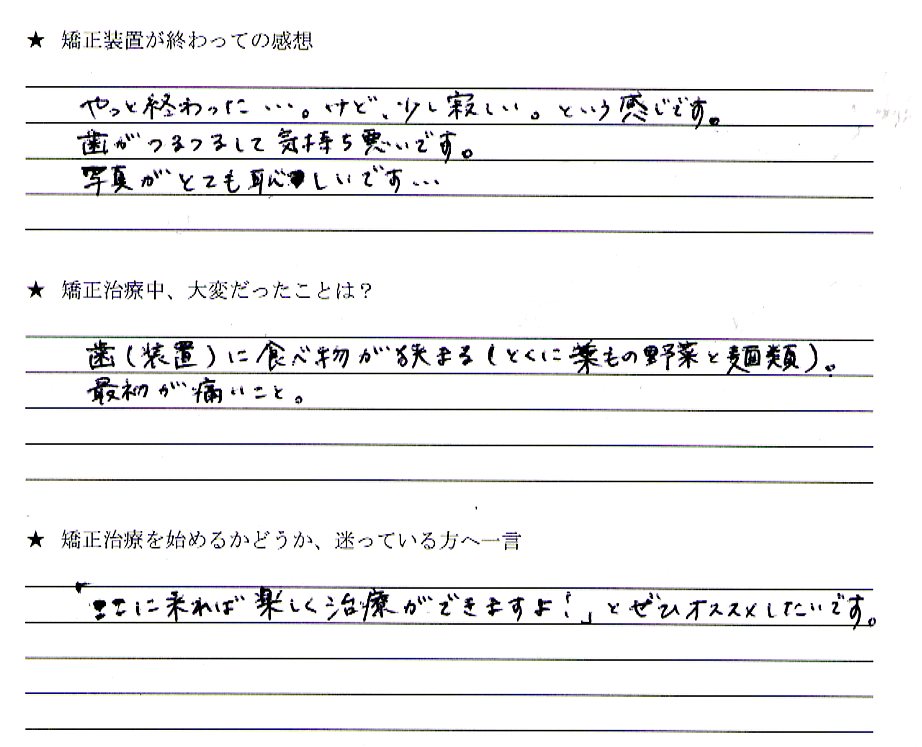 ★ 矯正装置が終わっての感想
やっと終わった…。けど、少し寂しい。という感じです。
歯がつるつるして気持ち悪いです。
写真がとても恥しいです…
★ 矯正治療中、大変だったことは？
歯(装置)に食べ物が挟まる(とくに葉もの野菜と麺類)。
最初が痛いこと。
★ 矯正治療を始めるかどうか、迷っている方へ一言
「ここに来れば楽しく治療ができますよ！」とぜひオススメしたいです。